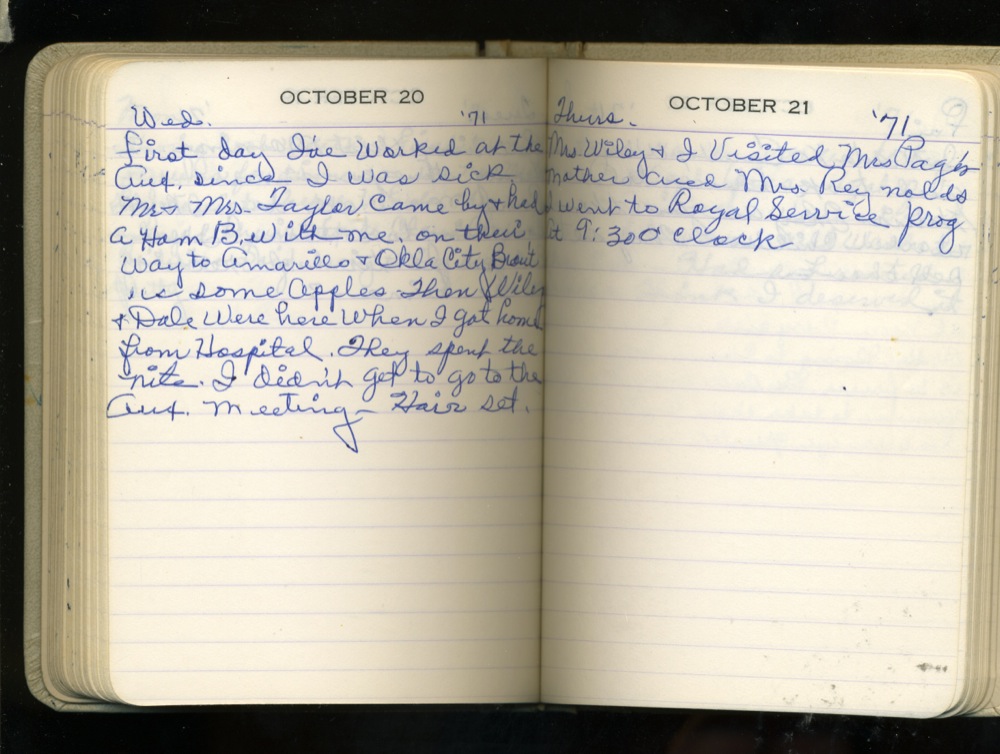 OCTOBER 20
Wed. '71
First day I've worked at the
Aux. since I was sick
Mr & Mrs. Taylor came by & had
a Ham B. with me. on their
way to Amarillo & Okla City Brout
us some apples. Then J Wiley
& Dale were here when I got home
from Hospital. They spent the
nite. I didn't get to go to the
Aux. meeting - Hair set.
OCTOBER 21
Thurs. '71
Mrs. Wiley & I Visited Mrs
mother and Mrs Reynolds
I went to Royal Service prog
at 9:30 o clock